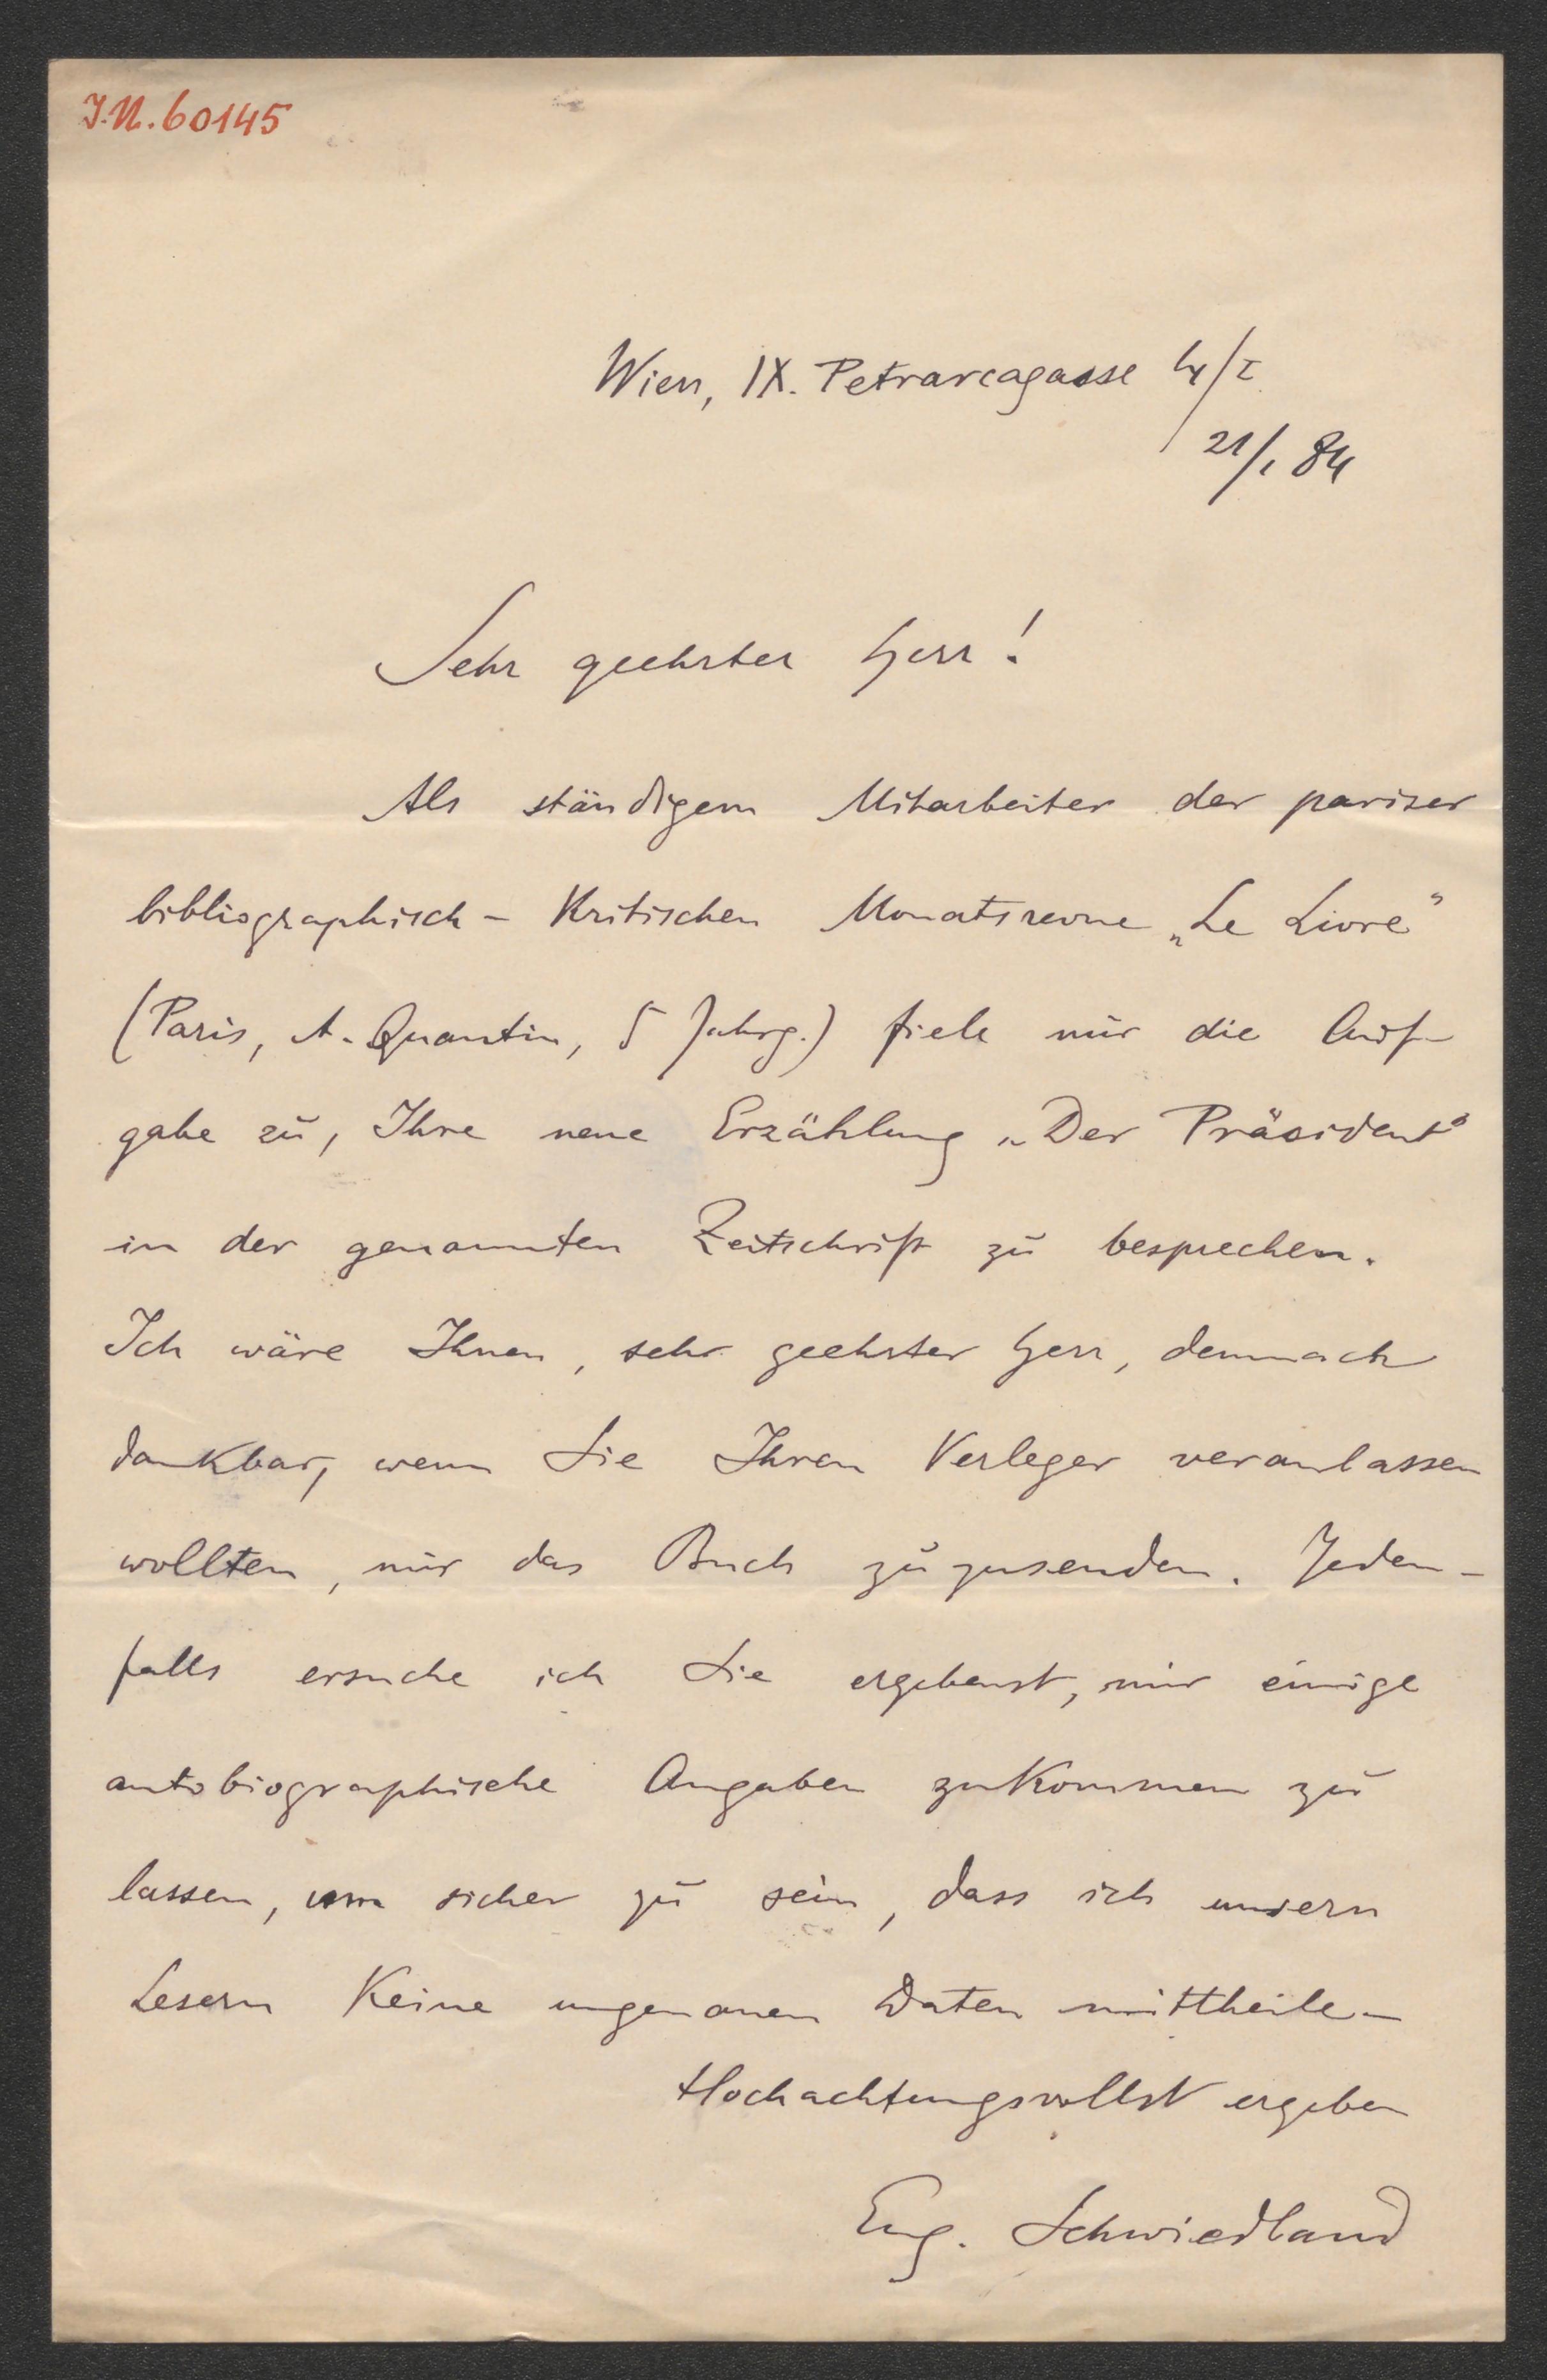 I.N. 60145
Wien, IX. Petrarcagasse 4/I
21/1 84
Sehr geehrter Herr!
Als ständigem Mitarbeiter der pariser
bibliographisch-kritischen Monatsrevue „Le Livre“
(Paris, A. Quantin, 5 Jahrg.) fiele mir die Auf-
gabe zu, Ihre neue Erzählung „Der Präsident“
in der genannten Zeitschrift zu besprechen.
Ich wäre Ihnen, sehr geehrter Herr, demnach
dankbar, wenn Sie Ihren Verleger veranlassen
wollten, mir das Buch zuzusenden. Jeden-
falls ersuche ich Sie ergebenst, mir einige
autobiographische Angaben zukommen zu
lassen, um sicher zu sein, dass ich unsern
Lesern keine ungenauen Daten mittheile—
Hochachtungsvollst ergeben
Eug. Schwiedland